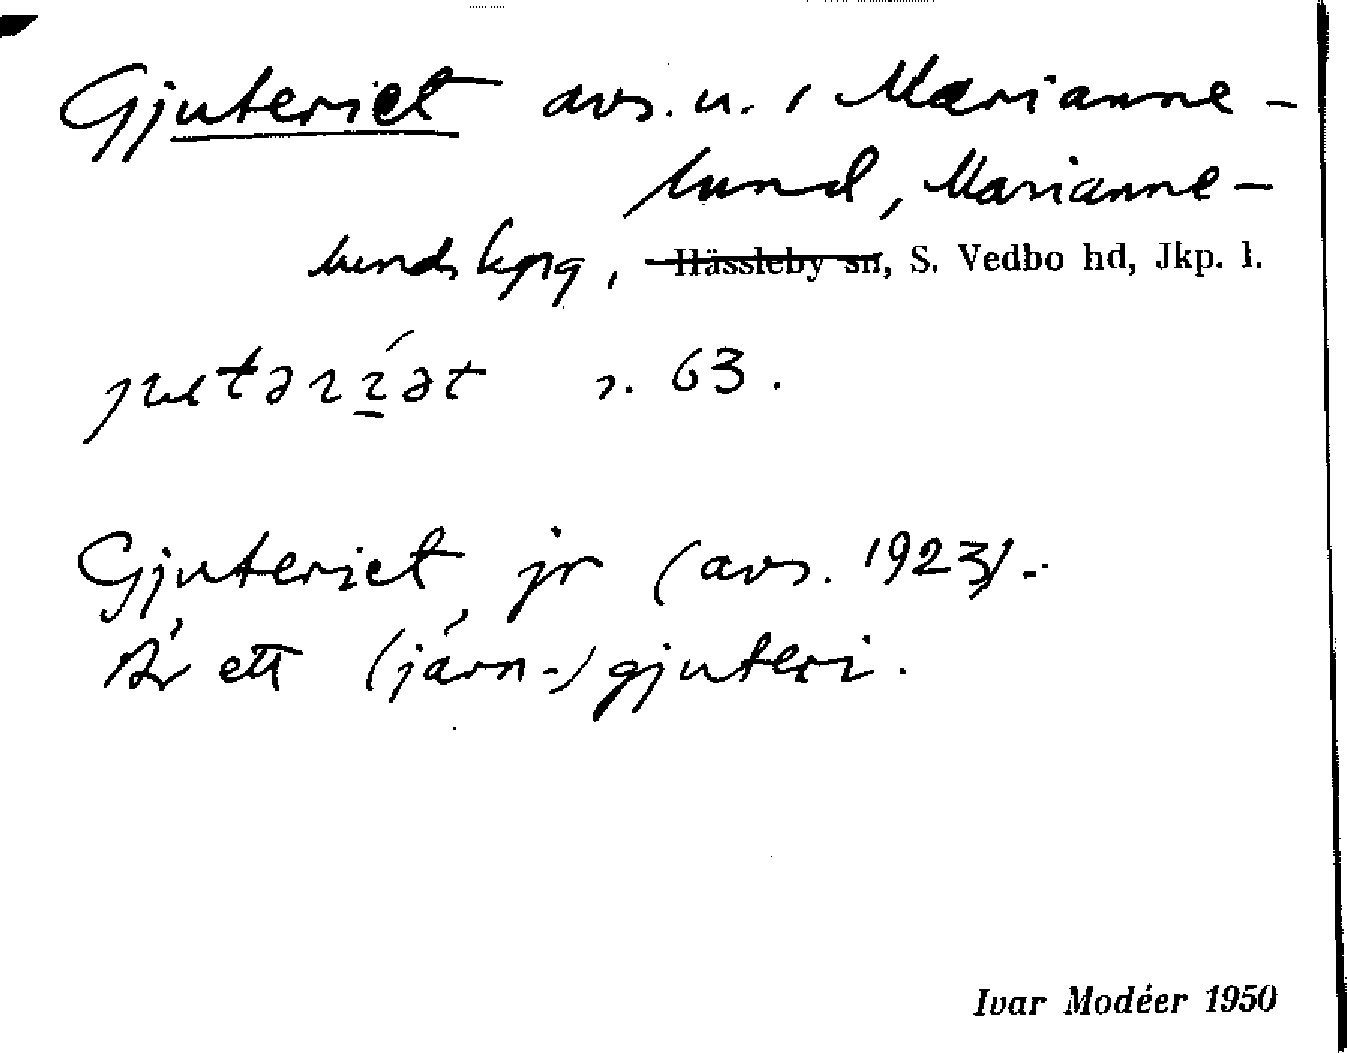 Gjuteriet avs. u. i Marianne-
lund, Marianne-
lunds kpng, Hässleby sn, S. Vedbo hd, Jkp. l.
s. 63.
Gjuteriet, jr (avs. 1923).-
Är ett (järn-)gjuteri.
Ivar Modéer 1950